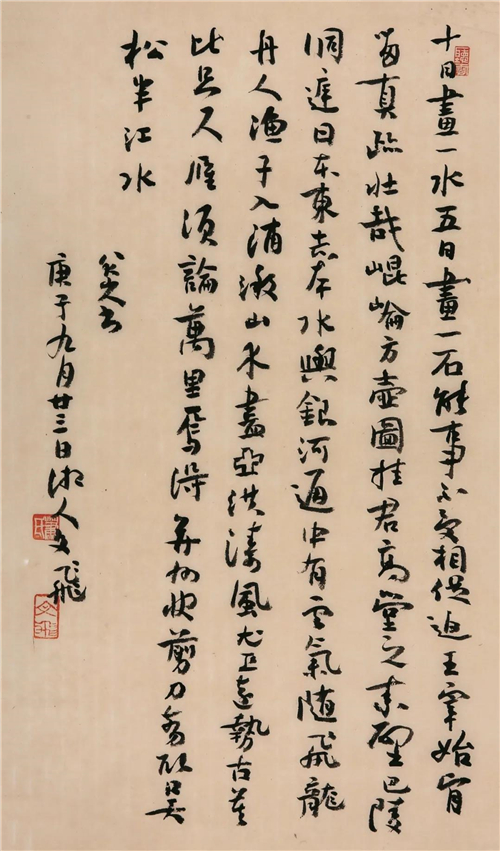 十日畫一水五日畫一石能事不受相促迫王宰始肯
留真跡壯哉崐崘方壺圖挂君高堂之素壁巴陵
洞庭日本東赤岸水與銀河通中有雲氣隨飛龍
舟人漁子入浦溆山木盡亞洪濤風尤工遠勢古莫
比只尺應須論萬里焉得并州快剪刀翦取吳
松半江水
八大書
庚子九月廿三日湘人文飛
文飛